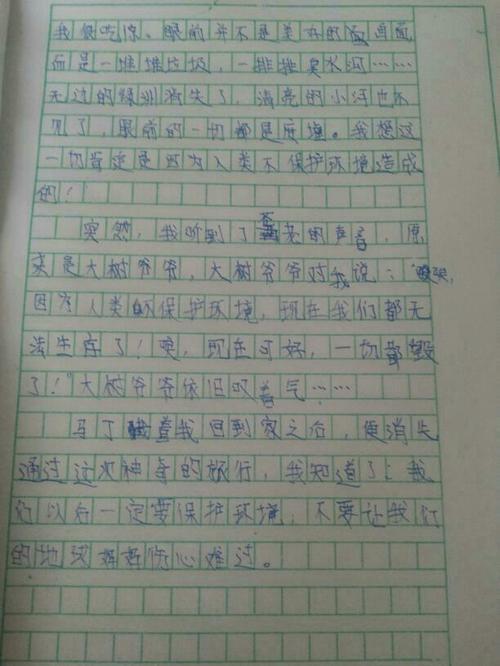 我很吃惊。眼前并不是美好的画面,
而是一堆堆垃圾,一排排臭水沟……
无边的绿洲消失了,清亮的小河也不
见了,眼前的一切都是废墟。我想这
一切肯定是因为人类不保护环境造成
的!
突然,我听到了苍老的声音,原
来是大树爷爷,大树爷爷对我说:“唉,
因为人类的保护环境,现在我们都无
法生存了!唉,现在可好,一切都毁
了!”大树爷爷依旧叹着气……
马丁带着我回到家之后,便消失
通过这次神奇的旅行,我知道了:我
们以后一定要保护环境,不要让我们
的地球妈妈伤心难过。